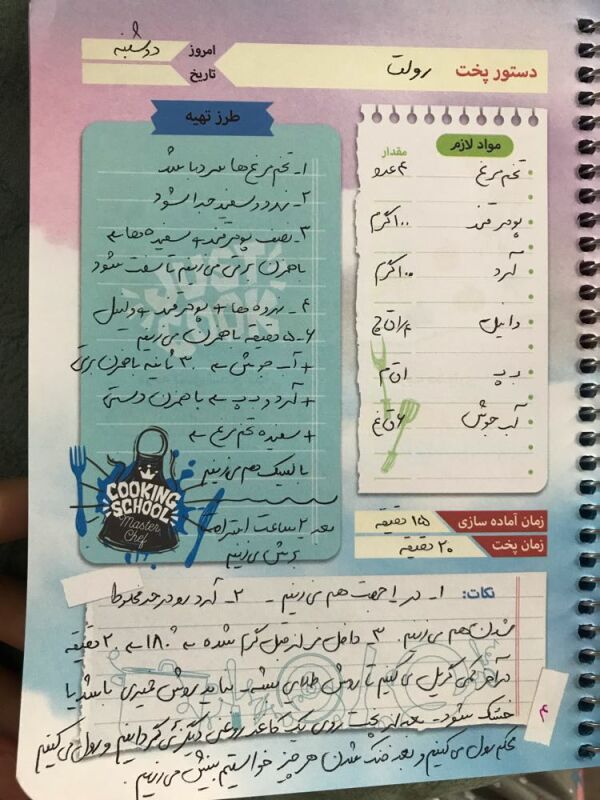 دستور پخت رولت
امروز دوشنبه
تاریخ
مواد لازم
مقدار
تخم مرغ ۴ عدد
پودر قند ۱۰۰ گرم
آرد ۱۰۰ گرم
وانیل ۱/۴ ق چ
ب پ ۱ ق م
آب جوش ۶ ق غ
زمان آماده سازی ۱۵ دقیقه
زمان پخت ۲۰ دقیقه
طرز تهیه
۱- تخم مرغ ها سرد باشند
۲- زرده و سفیده جدا شود
۳- نصف پودر قند + سفیده ها ←
با همزن برقی می زنیم تا سفت شود
۴- زرده ها + پودر قند + وانیل
۴-۵ دقیقه با همزن می زنیم
+ آب جوش ← ۳۰ ثانیه با همزن برقی
+ آرد و ب پ ← با همزن دستی
+ سفیده تخم مرغ ←
با لیسک هم می زنیم
بعد ۲ ساعت استراحت
برش می زنیم
JUST
COOK
COOKING
SCHOOL
Master
Chef
نکات: ۱- در یک جهت هم می زنیم - ۲- آرد رو در حد مخلوط
شدن هم می زنیم. ۳- داخل فر از قبل گرم شده ← ۱۸۰° ← ۲۰ دقیقه
در آخر کمی گریل می کنیم تا روش طلایی بشه - نباید روش خمیری باشد یا
خشک شود - بعد از پخت روی یک کاغذ روغنی دیگر برمی گردانیم و رول می کنیم
محکم رول می کنیم و بعد خنک شدن هر چیز خواستیم بینش می زنیم.
۴